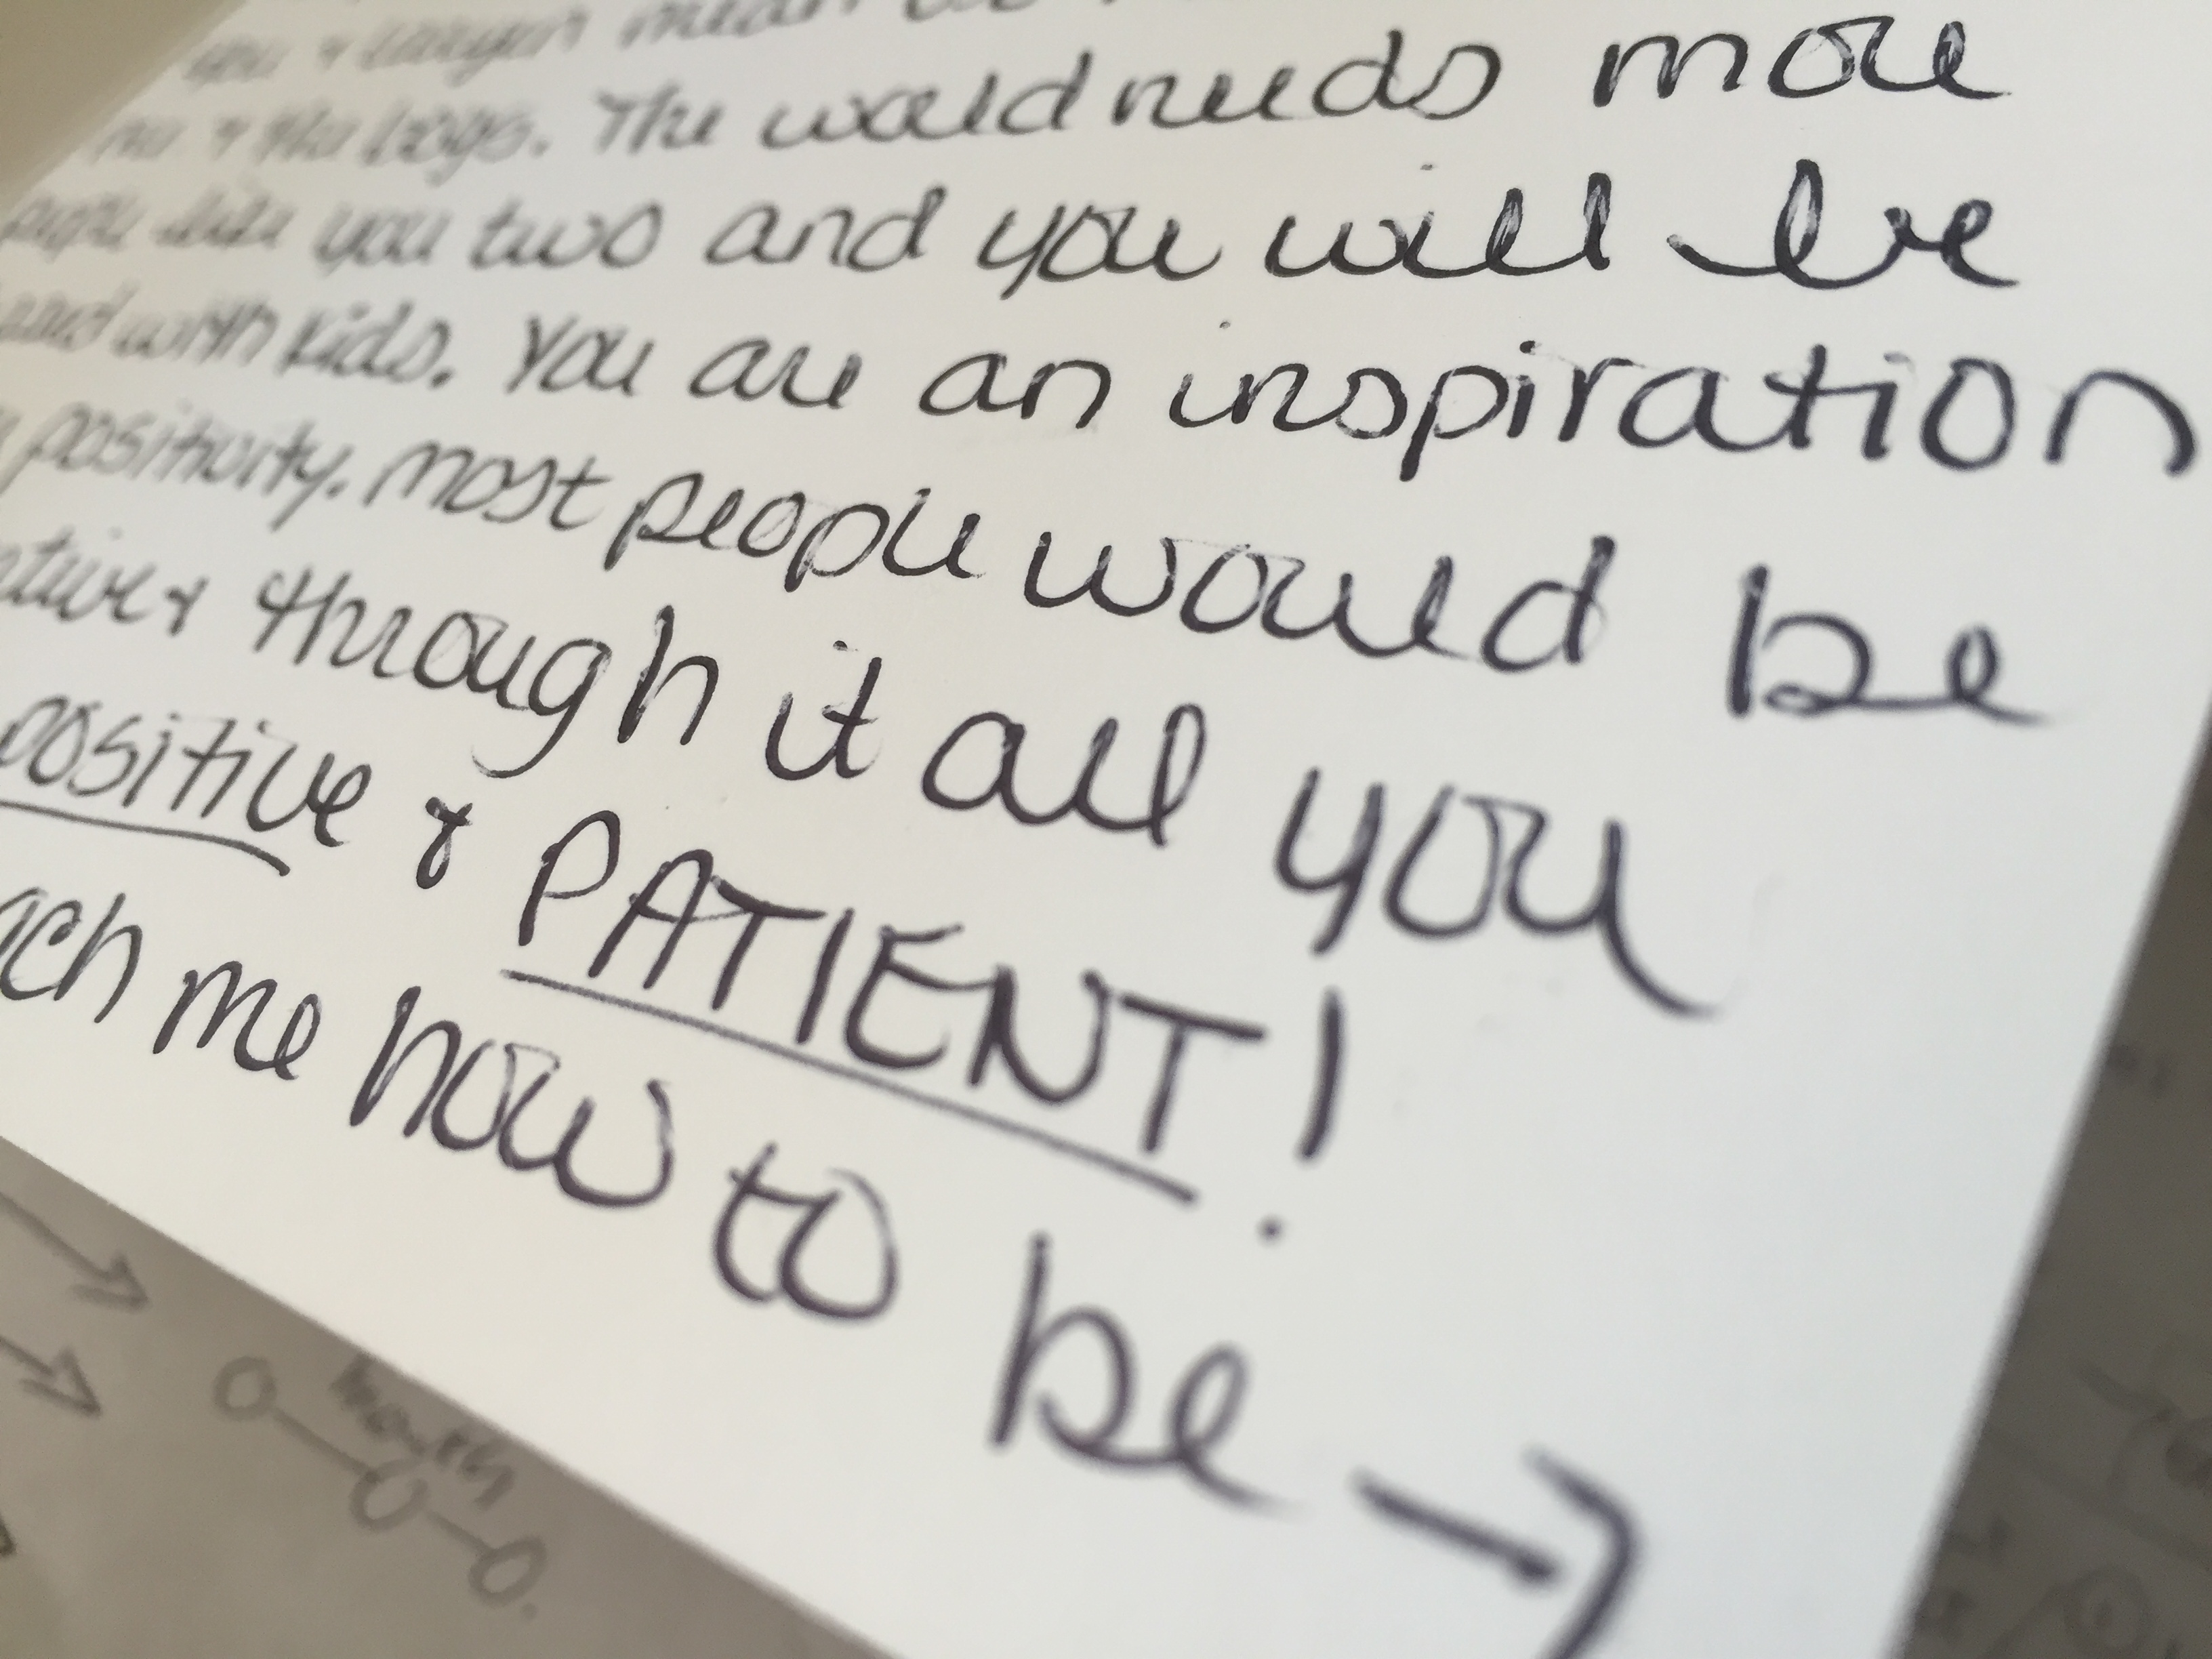 you & mean
& the boys. The world needs more
people like you two and you will be
with kids. You are an inspiration
positivity. Most people would be
& through it all you
positive & PATIENT!
me how to be →